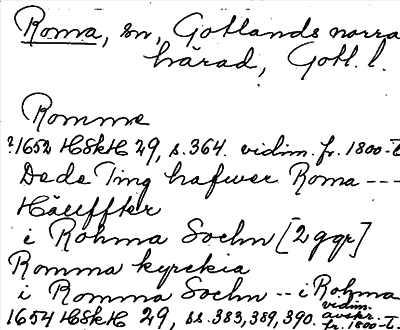 Roma, sn, Gotlands norra
härad, Gotl. l.
Romme
?1652 HSkH 29, s. 364. vidim. fr. 1800-t.
Dede Ting hafwer Roma ---
Häeffter
i Rohma Sochn [2 ggr]
Romma kyrckia
i Romma Sochn -- i Rohma
1654 HSkH 29, ss. 383, 389, 390. vidim. avskr. fr. 1800-t.